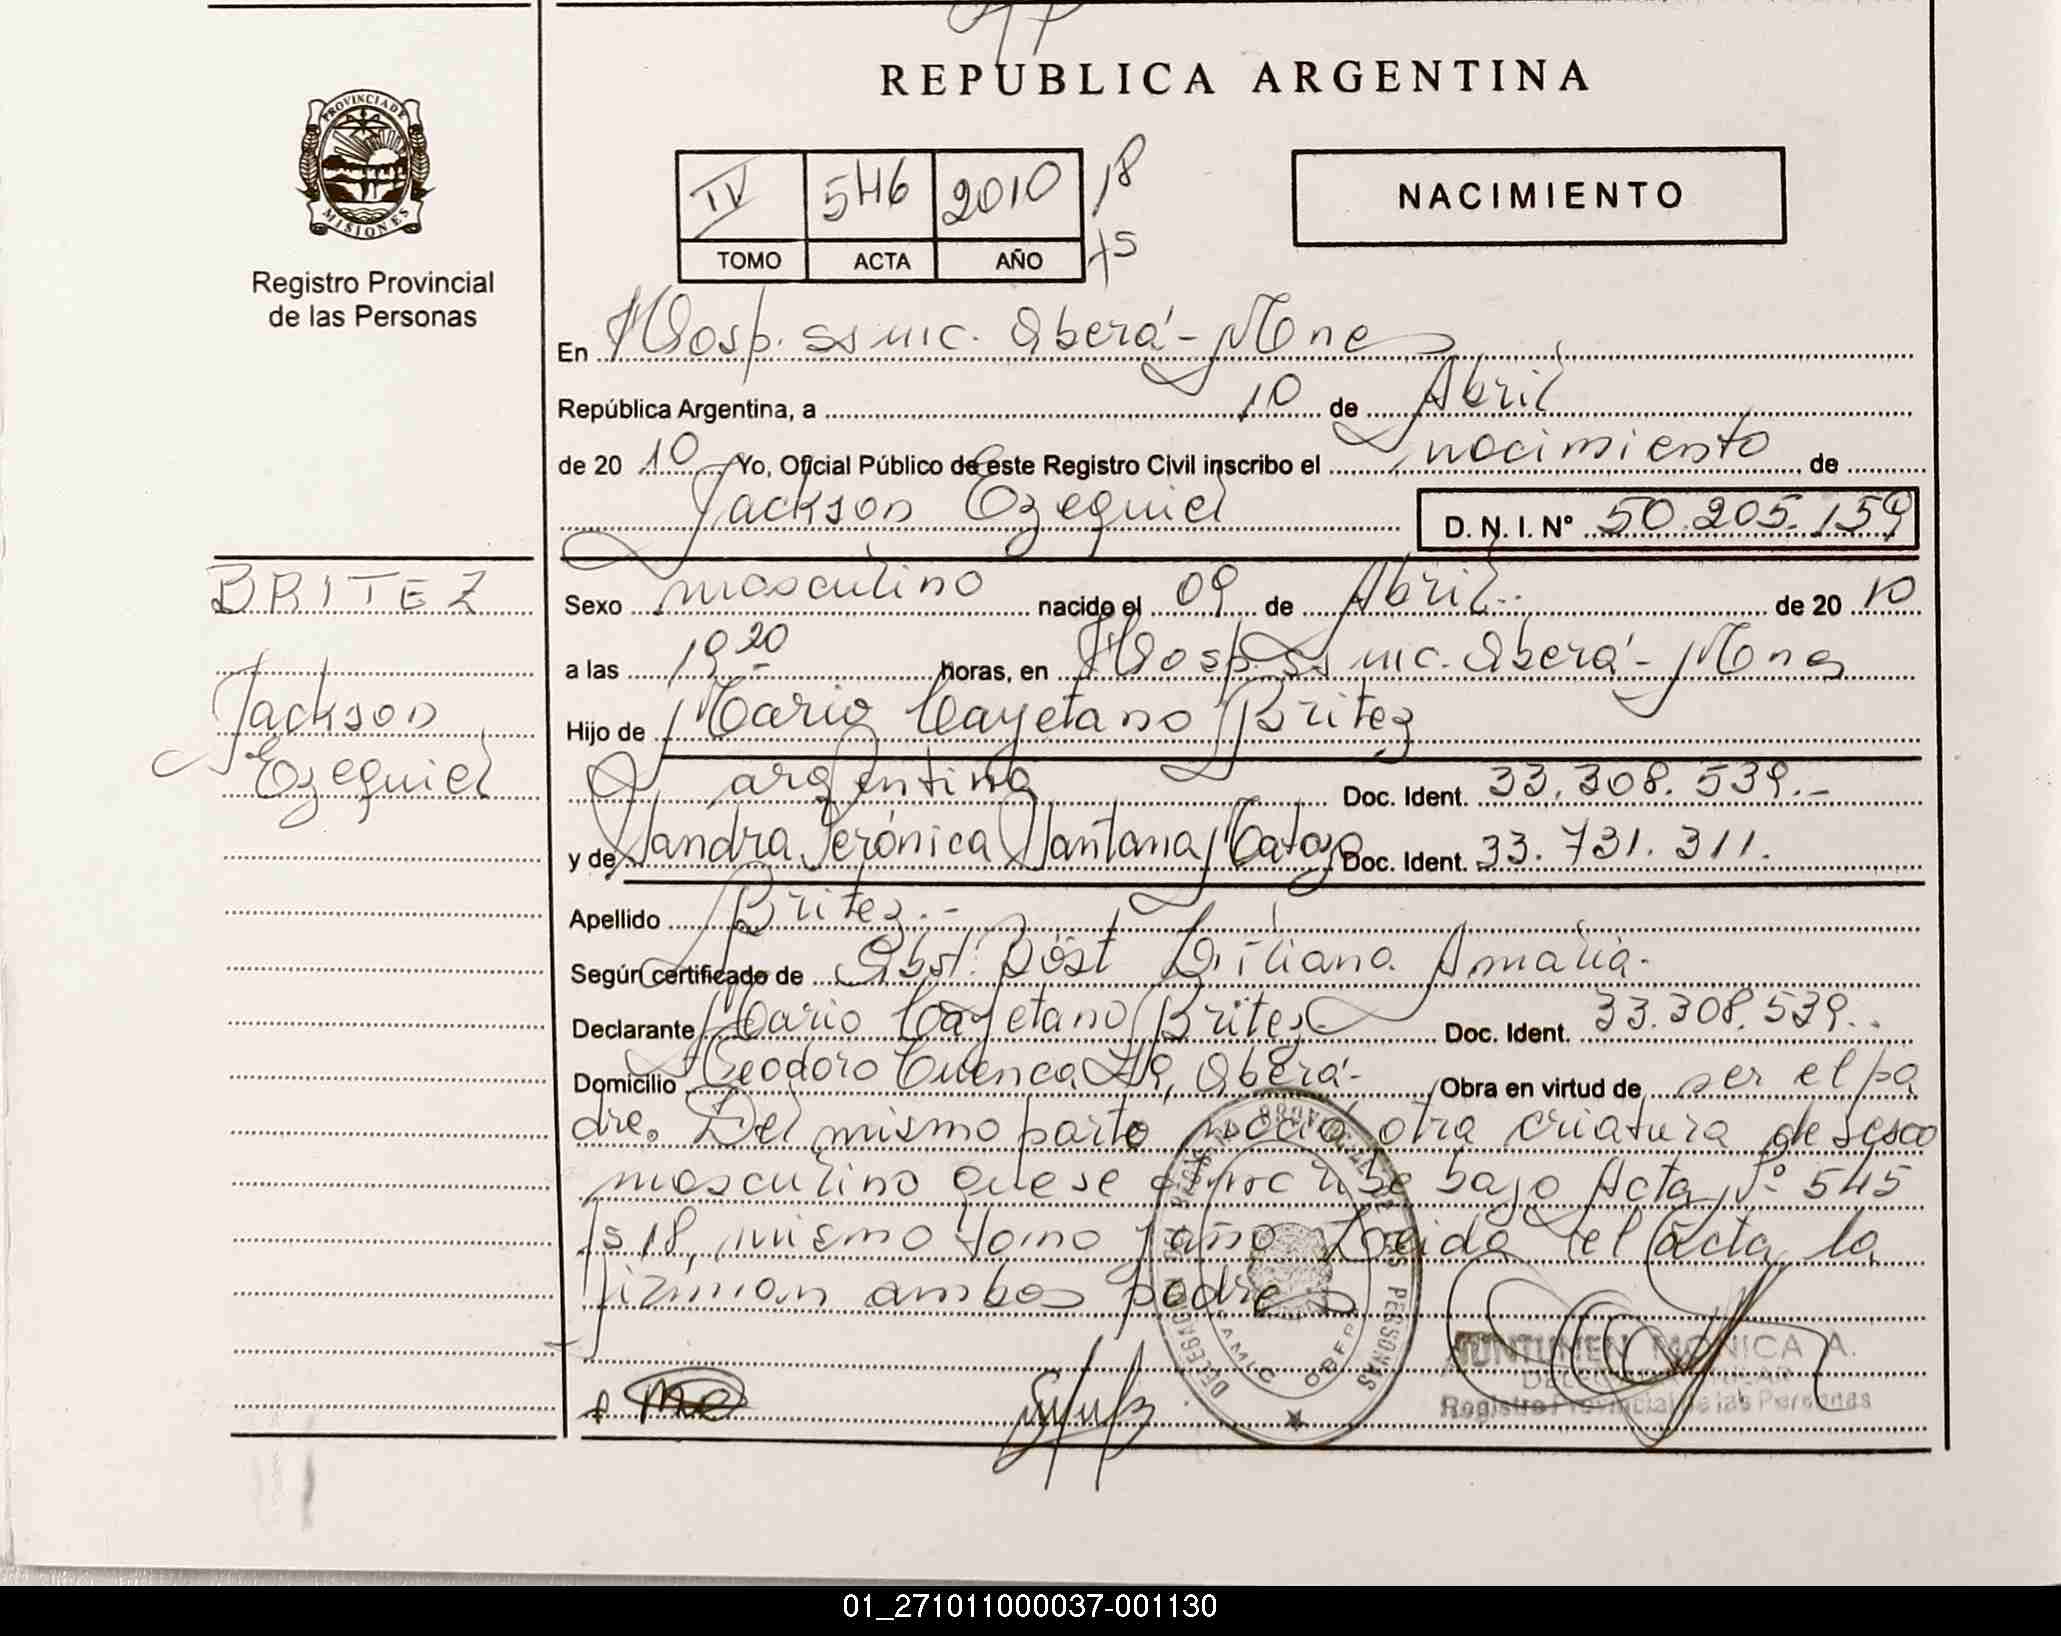 REPUBLICA ARGENTINA
PROVINCIA DE
MISIONES
Registro Provincial
de las Personas
IV 546 2010 18
TOMO ACTA AÑO 45
NACIMIENTO
En Hosp. ss mic. Oberá - Mnes
República Argentina, a 10 de Abril
de 20 10 Yo, Oficial Público de este Registro Civil inscribo el nacimiento de
Jackson Ezequiel D. N. I. N° 50.205.159
BRITEZ
Jackson
Ezequiel
Sexo masculino nacido el 09 de Abril.. de 20 10
a las 19 20 horas, en Hosp. ss mic. Oberá - Mnes
Hijo de Mario Cayetano Britez
argentina Doc. Ident. 33.308.539.-
y de Sandra Verónica Santana Doc. Ident. 33.731.311.
Apellido Britez.-
Según certificado de Obst. Böst Liliana Amalia.
Declarante Mario Cayetano Britez Doc. Ident. 33.308.539..
Domicilio Teodoro Cuenca, Oberá- Obra en virtud de ser el pa
dre. Del mismo parto nació otra criatura de sexo
masculino que se inscribe bajo Acta Nº 545
fs 18, mismo tomo y año Leida el acta la
firman ambos padres
MONICA A.
Registro Provincial de las Personas
01_271011000037-001130